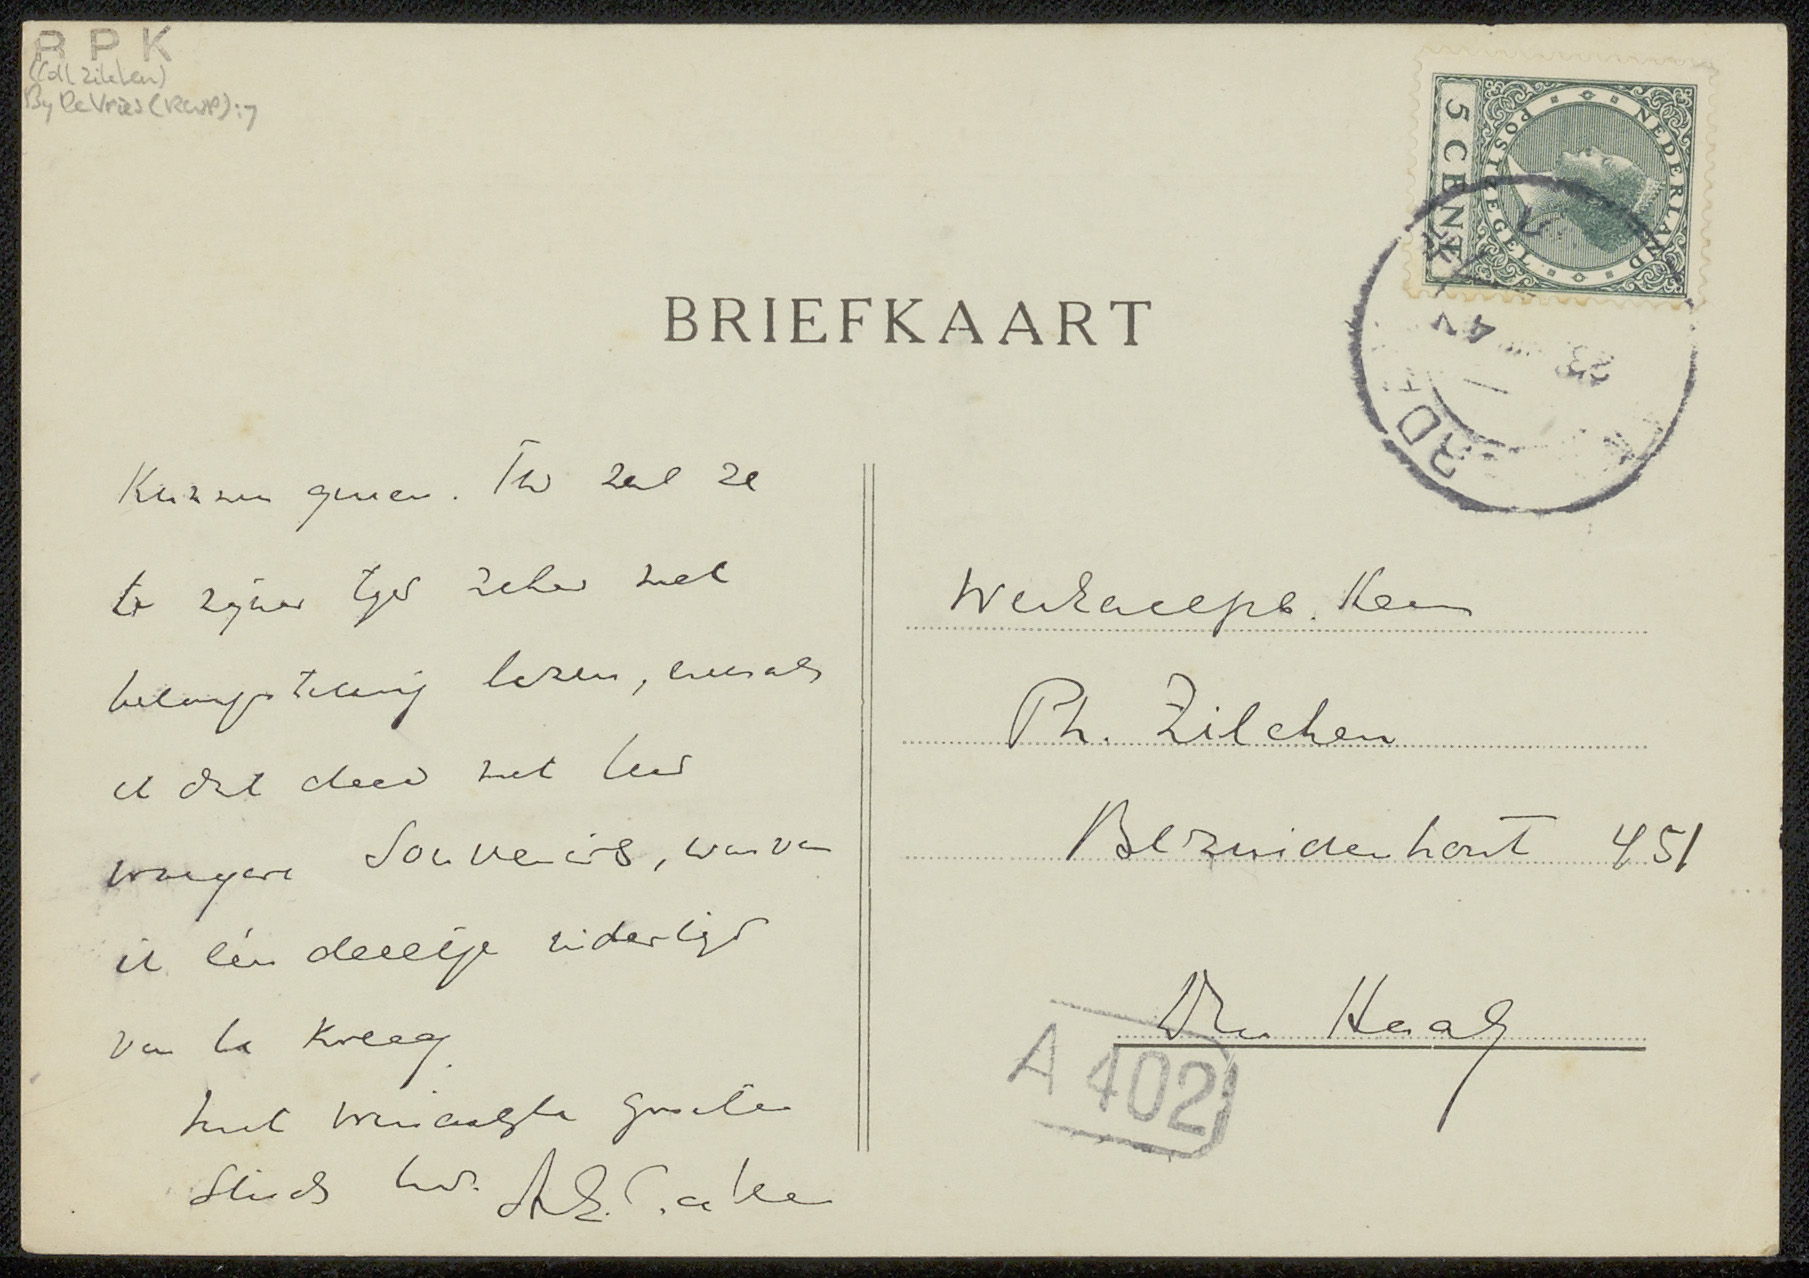 R P K
(Coll Zilcken)
By De Vries (RWP): 7
NEDERLAND
POSTZEGEL
5 CENT
BRIEFKAART
kunnen geven. Ik zal ze
te zijner tijd zeker met
belangstelling lezen, evenals
ik dat deed met Uw
vroegere Souvenirs, waarvan
ik één deeltje indertijd
van U kreeg.
Met vriendelijke groeten
steeds Uw.
WelEdelGeb. Heer
Ph. Zilcken
Bezuidenhout 451
Den Haag
A 402